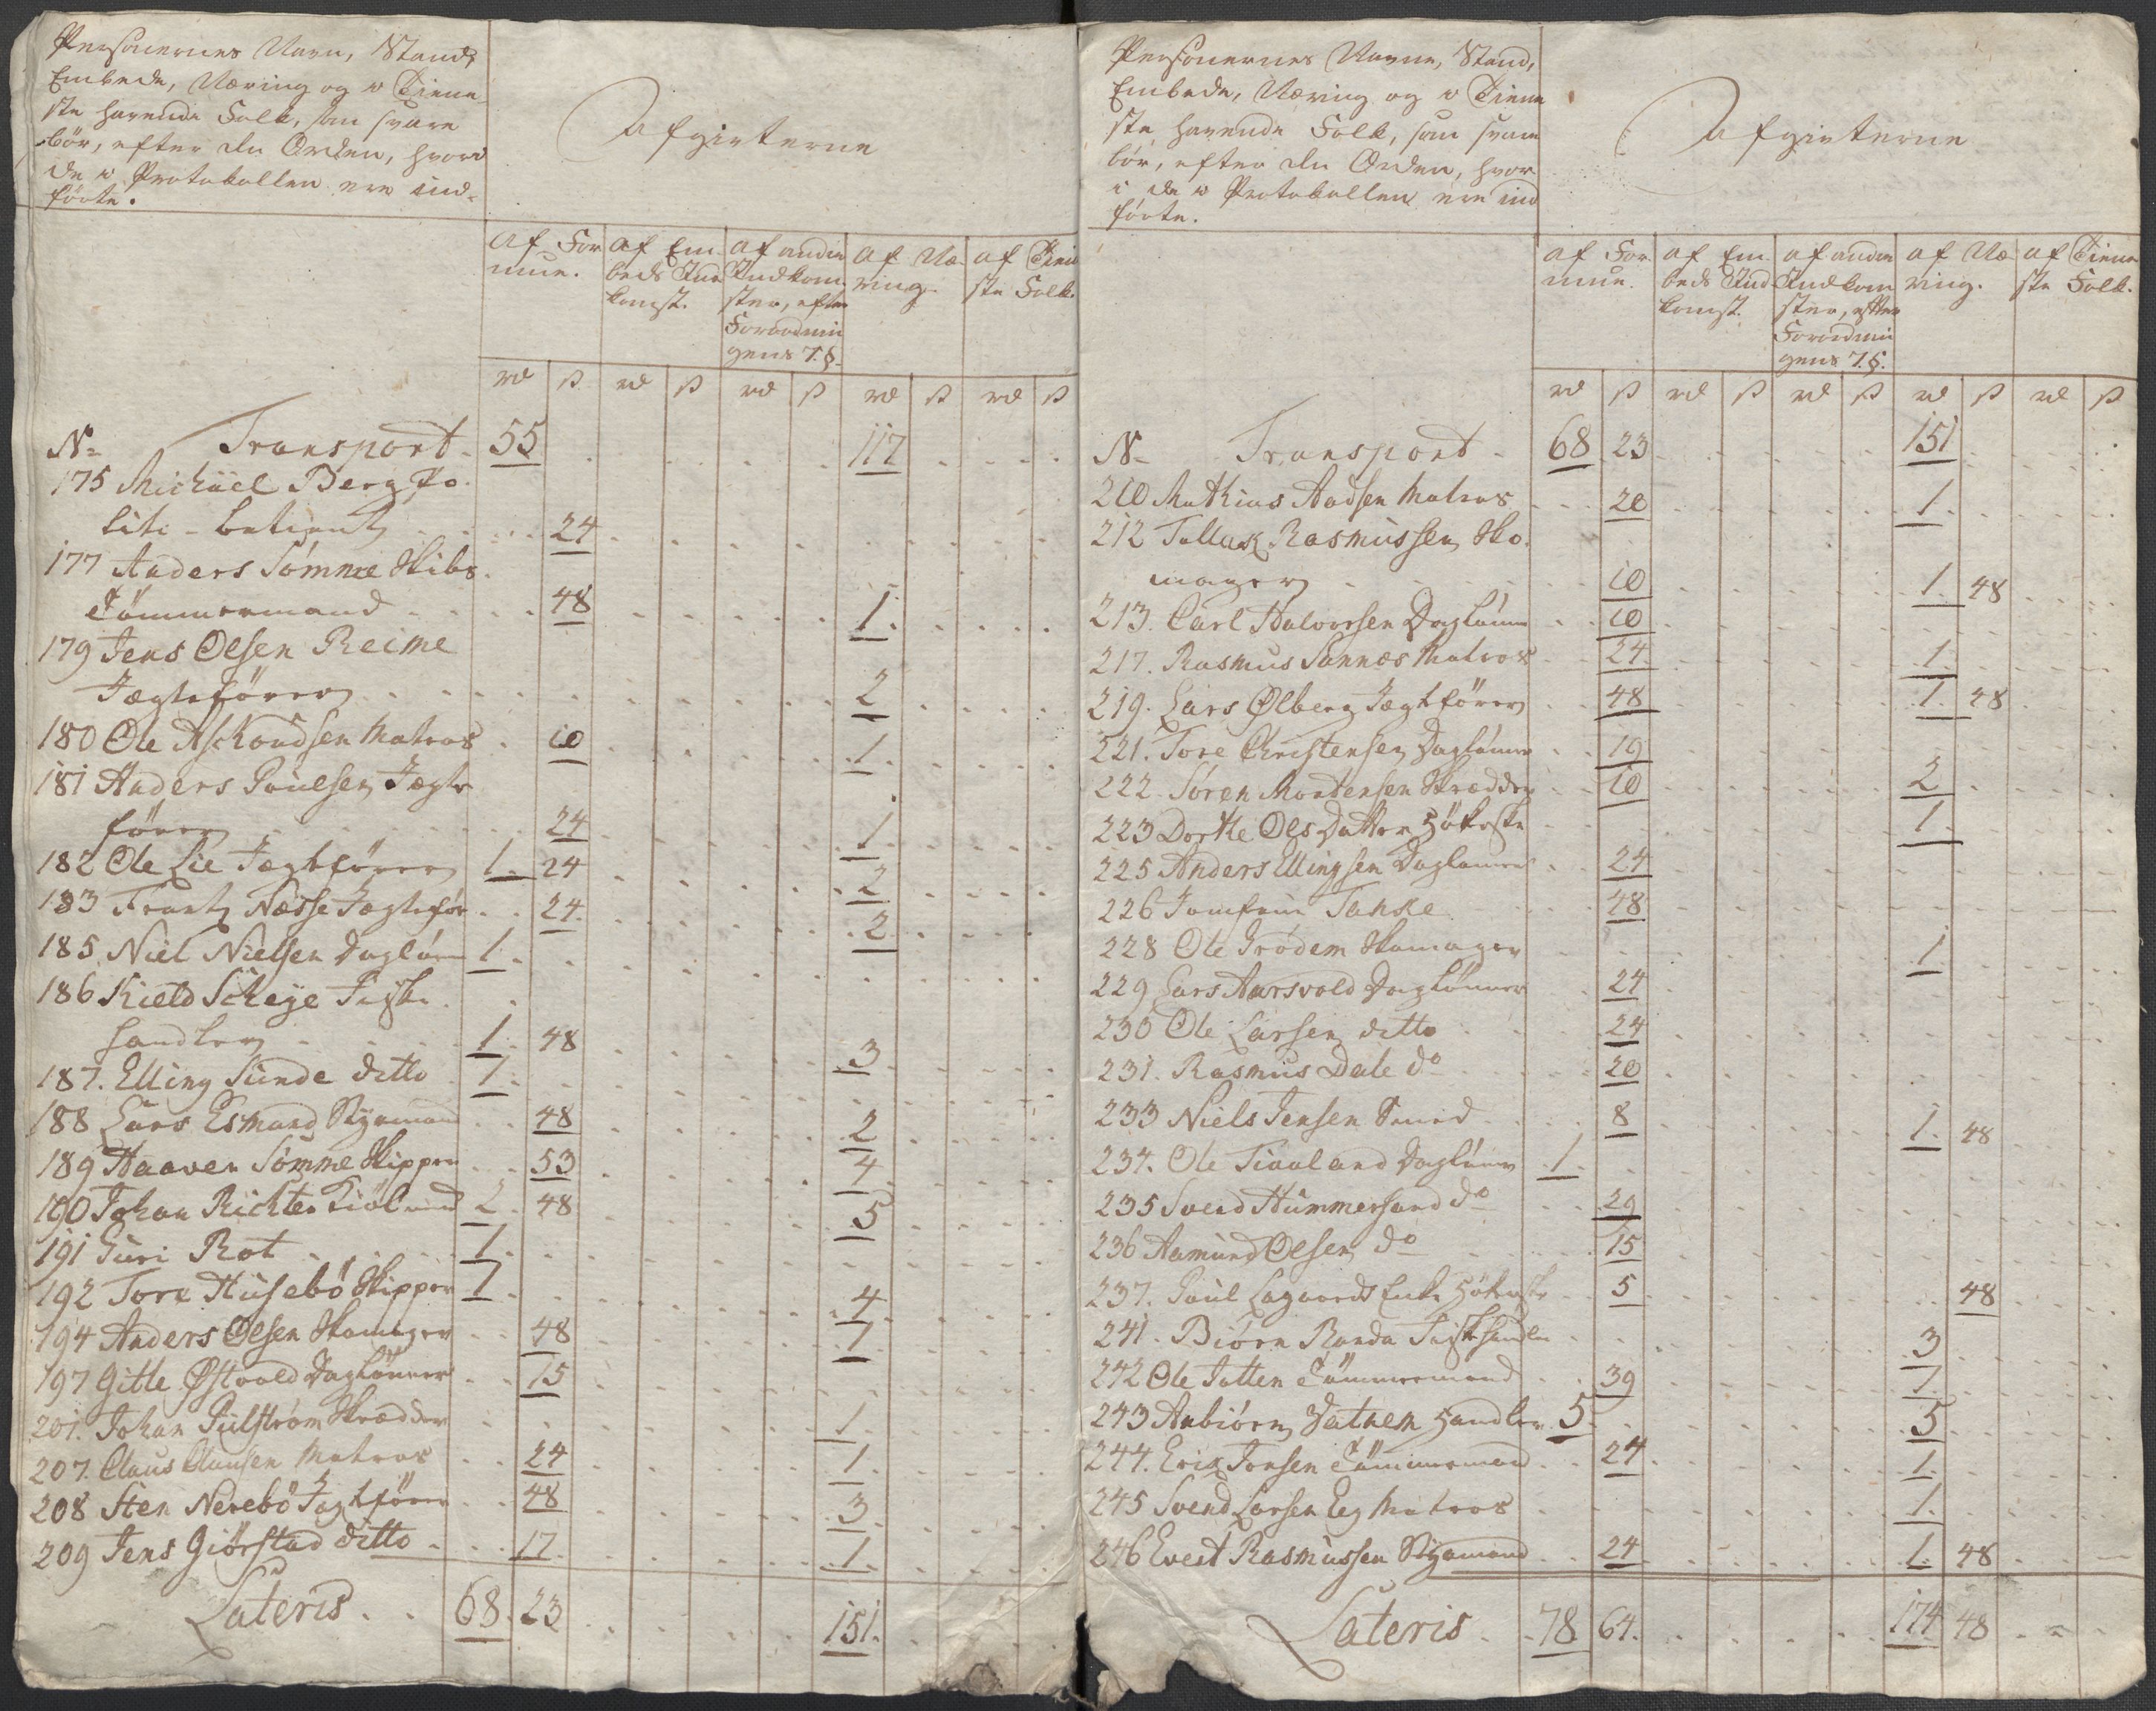 Personernes Navn, Stand,
Embede, Næring og i Tiene-
ste havende Folk, som svare
bör, efter den Orden, hvori
de i Protokollen ere ind-
förte.
Afgivterne
Af For
mue.
Af Em-
beds Ind
komst.
Af andre
Indkom-
ster, efter
Forordnin
gens 7. §.
Af Næ-
ring.
Af Tiene
ste Folk.
rd ß rd ß rd ß rd ß rd ß
No Transport 55 117
175 Michäel Berg Po-
liti-betient 24
177 Anders Sömme Skibs
Tömmermand 48 1
179 Jens Olsen Reime
Jægteförer 2
180 Ole Askoudsen Matros 10 1
181 Anders Poulsen Jægte
förer 24 1
182 Ole Lie Jægtförer 1 24 2
183 Frantz Næsse Jagteför 24 2
185 Niel Nielsen Daglön 1
186 Kield Scheye Fiske
handler 1 48 3
187. Elling Sunde ditto 1
188 Lars Esmand Styrmand 48 2
189 Haaver Sömme Skipper 53 4
190 Johan Richter Kiöbmand 2 48 5
191 Guri Rot 1
192 Tore Husebö Skipper 1 4
194 Anders Olsen Skomager 48 1
197 Gitle Østvold Daglönner 15
201. Johan Pulström Skrædder 1
207. Claus Clausen Matros 24 1
208 Sten Nerebö Jagtförer 48 3
209 Jens Giörstad ditto 17 1
Lateris 68 23 151
Personernes Navne, Stand,
Embede, Næring og i Tiene
ste havende Folk, som svare
bör, efter den Orden, hvor
i de i Protokollen ere ind
förte.
Afgivterne
af For
mue.
af Em
beds Ind
komst.
af andre
Indkom
ster, efter
Forordnin
gens 7. §.
af Næ
ring.
af Tiene
ste Folk.
rd ß rd ß rd ß rd ß rd ß
No Transport 68 23 151
210 Mathias Aadsen Matros 20 1
212 Tollak Rasmussen Sko-
mager 10 1 48
213. Carl Halvorsen Daglönn 10
217. Rasmus Sannes Matros 24 1
219. Lars Ølberg Jægtförer 48 1 48
221. Tore Christensen Daglönner 19
222. Sören Mortensen Skrædder 10 2
223 Dorthe Ols Datter Hökerske 1
225 Anders Ellingsen Daglönner 24
226 Jomfrue Tanke 48
228 Ole Frödem Skomager 1
229 Lars Aarsvold Daglönner 24
230 Ole Larsen ditto 24
231. Rasmus Dale do 20
233 Niels Jensen Smed 8 1 48
234. Ole Tiaaland Daglönner 1
235 Svend Hummersand do 29
236 Aamund Olsen do 15
237. Poul Lagaards Enke Hökerske 5 48
241. Biörn Randa Fiskehandler 3
242 Ole Jatten Tömmermand 39 1
243 Anbiörn Vatnem Handler 5 5
244. Erik Jonsen Tömmermand 24 1
245 Svend Larsen Eeg Matros 1
246 Evert Rasmussen Styrmand 24 1 48
Lateris 78 64 174 48